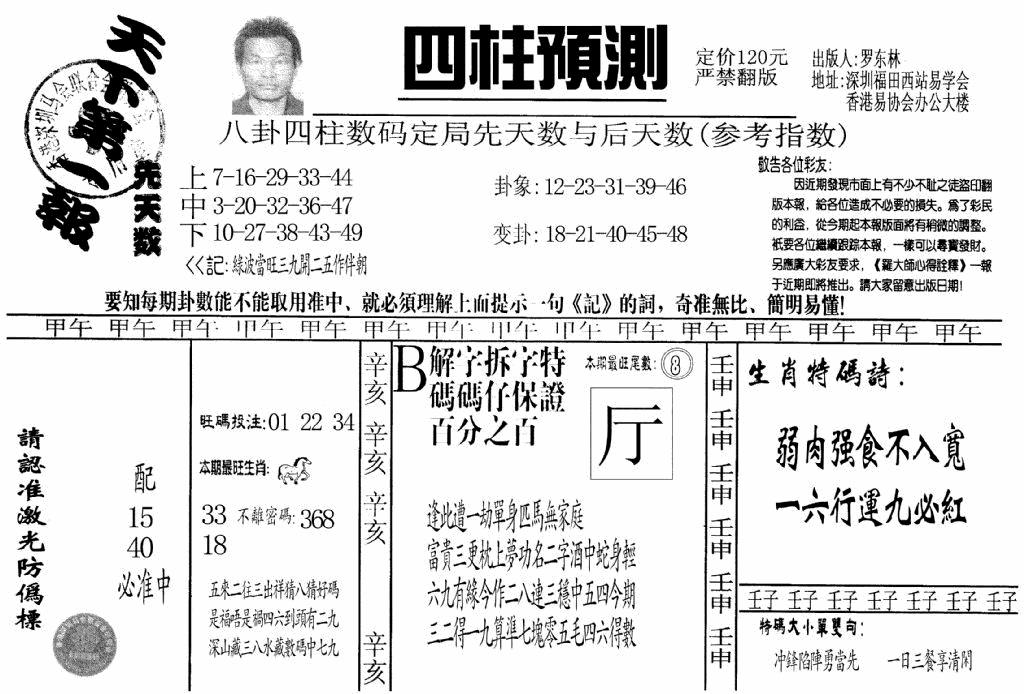 天下第一報
先天数
四柱預測
定价120元
严禁翻版
出版人:罗东林
地址:深圳福田西站易学会
香港易协会办公大楼
八卦四柱数码定局先天数与后天数(参考指数)
上 7-16-29-33-44
中 3-20-32-36-47
下 10-27-38-43-49
<<記: 綠波當旺三九開二五作伴朝
卦象: 12-23-31-39-46
变卦: 18-21-40-45-48
敬告各位彩友:
因近期發現市面上有不少不耻之徒盜印翻
版本報, 給各位造成不必要的損失。爲了彩民
的利益, 從今期起本報版面將有稍微的調整。
衹要各位繼續跟踪本報, 一樣可以尋寶發財。
另應廣大彩友要求, 《羅大師心得詮釋》一報
于近期即將推出。請大家留意出版日期!
要知每期卦數能不能取用准中、就必須理解上面提示一句《記》的詞, 奇准無比、簡明易懂!
甲午 甲午 甲午 甲午 甲午 甲午 甲午 甲午 甲午 甲午 甲午 甲午 甲午 甲午 甲午
請認准激光防僞標
配
15
40
必准中
旺碼投注:01 22 34
本期最旺生肖:
33 不離密碼: 368
18
五來二住三出祥猜八猜好碼
是福唔是禍四六到頭有二九
深山藏三八水藏數碼中七九
辛亥 辛亥 辛亥 辛亥
B解字拆字特
碼碼仔保證
百分之百
本期最旺尾數: 8
厅
逢此遭一劫單身匹馬無家庭
富貴三更枕上夢功名二字酒中蛇身輕
六九有緣今作二八連三穩中五四今期
三二得一九算準七塊零五毛四六得數
壬申 壬申 壬申 壬申 壬申 壬申
生肖特碼詩:
弱肉强食不入寬
一六行運九必紅
壬子 壬子 壬子 壬子 壬子 壬子 壬子
特碼大小單雙句:
冲鋒陷陣勇當先 一日三餐享清閑